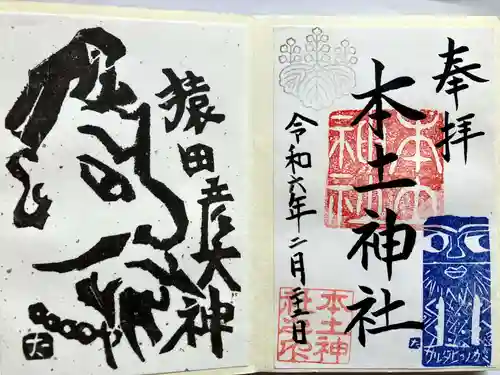 奉拝
本土神社
令和六年二月二十三日
本土神社
本土神社之印
サルタヒコノカミ
猿田彦大神